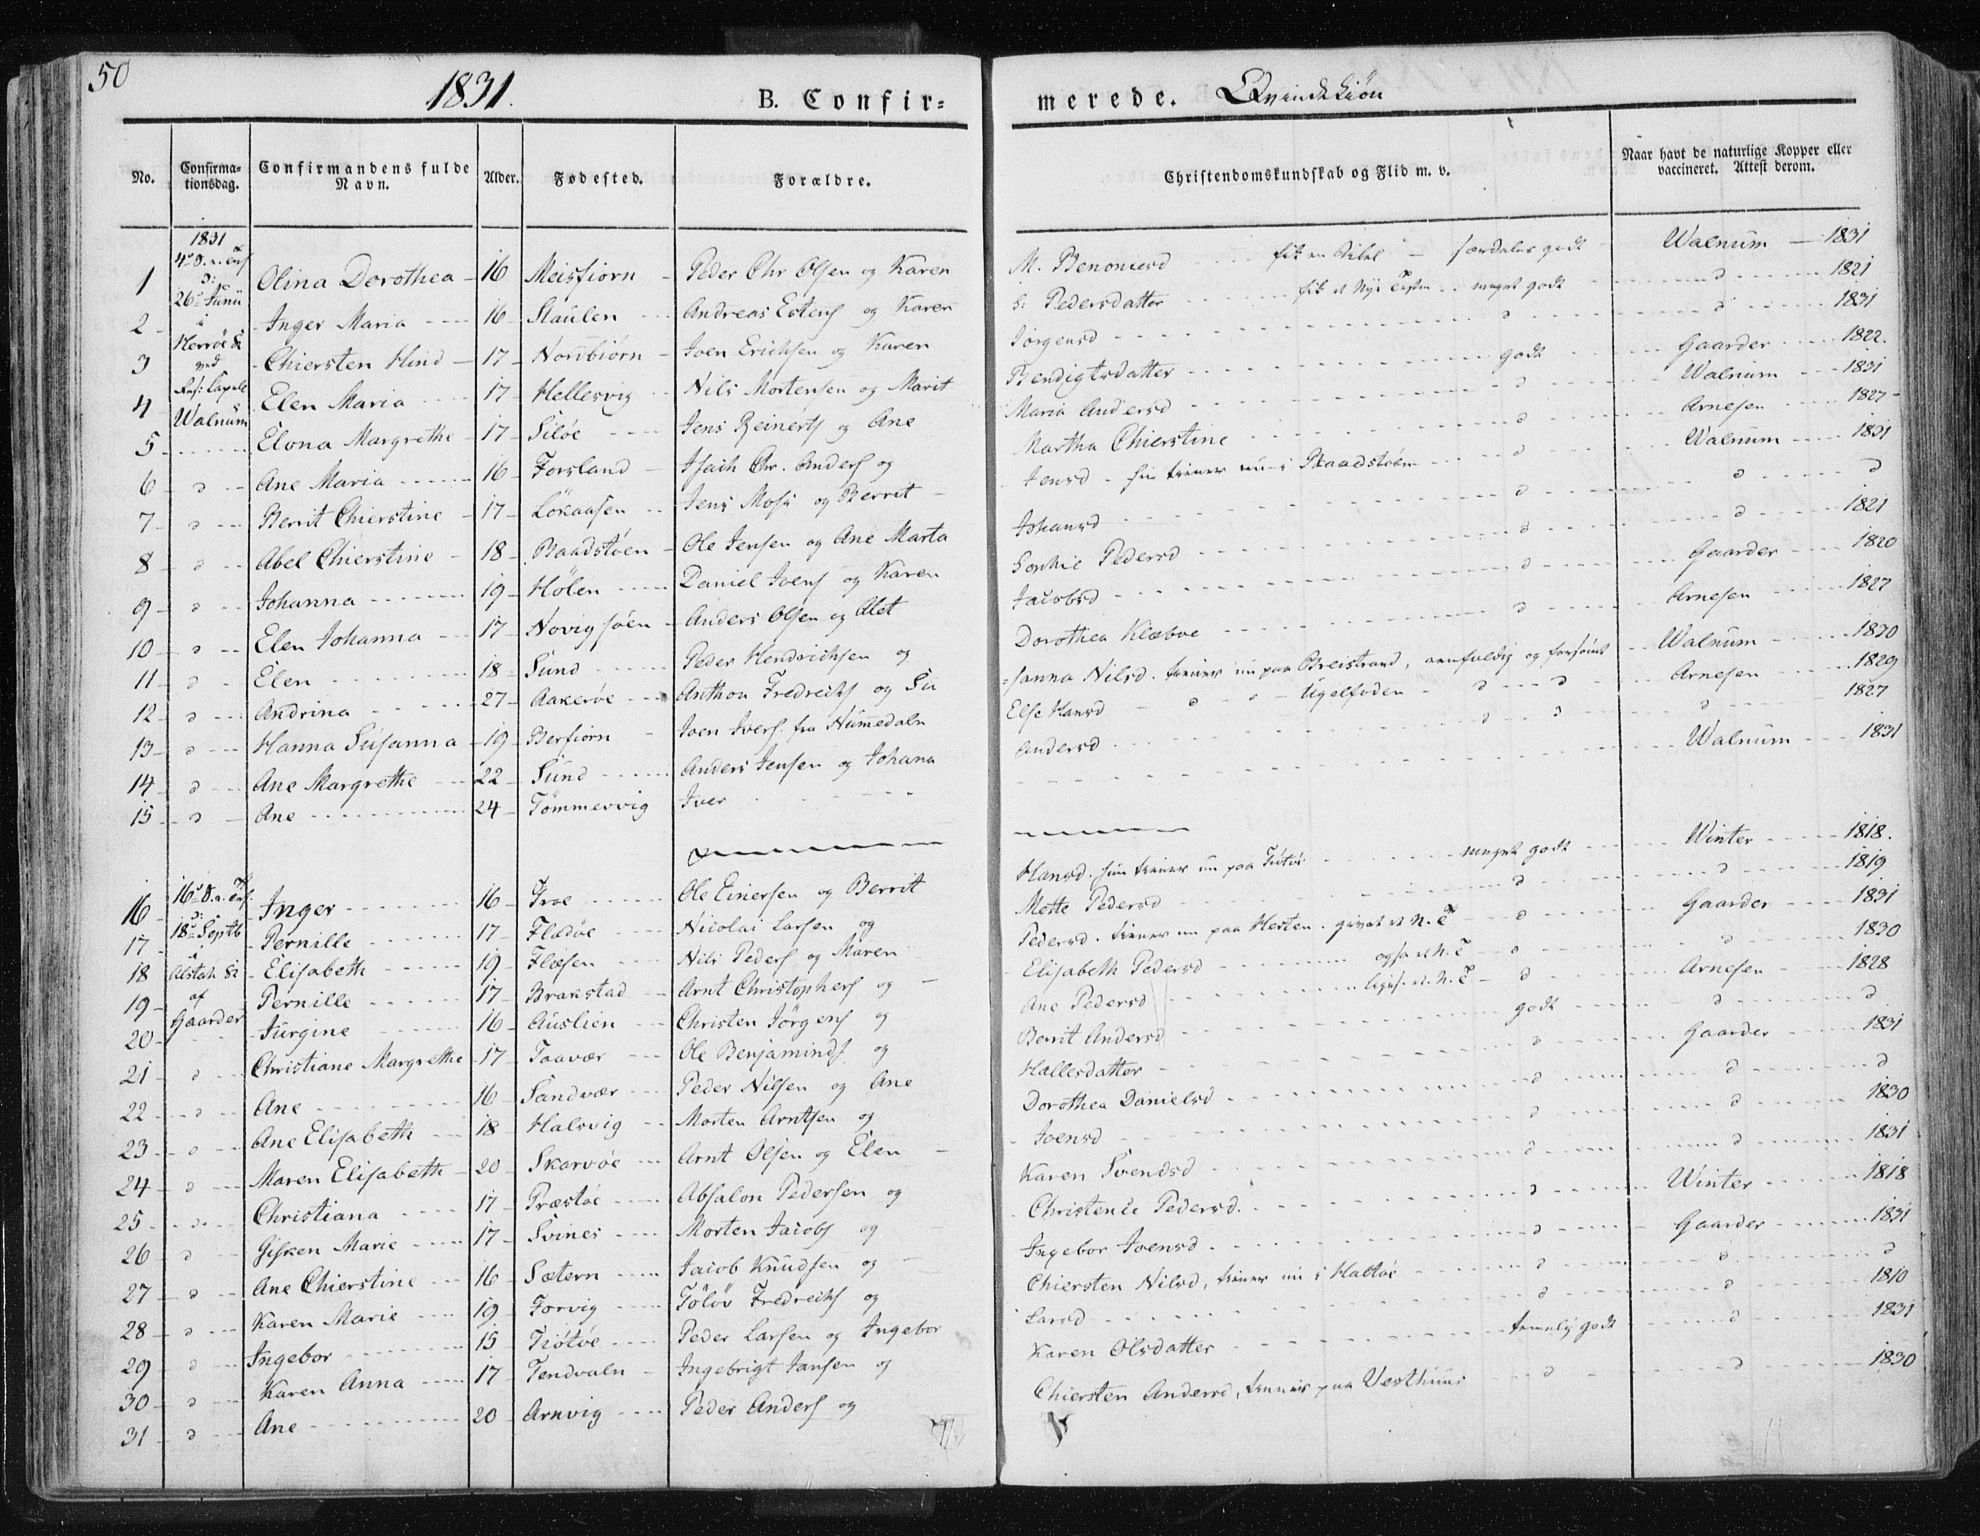 50
1831.
B. Confir=
merede.
Qvindekiön
No.
Confirma-
tionsdag.
Confirmandens fulde
Navn.
Alder.
Fødested.
Forældre.
Christendomskundskab og Flid m. v.
Naar havt de naturlige Kopper eller
vaccineret. Attest derom.
1831
1 Olina Dorothea 16 Meisfiorn Peder Chr Olsen og Karen M. Benoniesd fik en Bibel særdeles godt Walnum 1831
26 Janu
2 Inger Maria 16 Staulen Andreas Estens og Karen Pedersdatter fik et Nye Testm meget godt d 1821
i
3 Herröe K Chiersten Hind 17 Norbiörn Joen Erichsen og Karen Jörgensd d d 1831
ved
Res: Capell
4 Elen Maria 17 Hellesvig Nils Mortensen og Marit Bendigtsdatter godt Gaarder 1822.
Walnum
5 Elona Margrethe 17 Silöe Jens Reinerts og Ane Maria Andersd d Walnum 1831
6 d Ane Maria 16 Forsland Isach Chr. Anders og Martha Chierstine d Arnesen 1827
7 d Berrit Chierstine 17 Lökaasen Jens Mosi og Berrit Jensd hun tiener nu i Baadstöen d Walnum 1831
8 d Abel Chierstine 18 Baadstöen Ole Jensen og Ane Marta Johansd d d d
9 d Johanna 19 Hölen Daniel Joens og Karen Sophie Pedersd d d 1821
10 d Elen Johanna 17 Novigsöen Anders Olsen og Alet Jacobsd d Gaarder 1820
11 d Elen 18 Sund Peder Hendrichsen og Dorothea Klæboe d Arnesen 1827
12 d Andrina 27 Aakeröe Anthon Fredrichs og Su sanna Nilsd. tiener nu paa Breistrand, eenfoldig og forsömt Walnum 1830
13 d Hanna Susanna 19 Berfiorn Joen Ivers. fra Numedaln Else Hansd d d Ugelfoden d d Arnesen 1829
14 d Ane Margrethe 22 Sund Anders Jensen og Johana Andersd d d d 1827
15 d Ane 24 Tömmervig Iver Walnum 1831
16 Inger 16 Troe Ole Einersen og Berrit Hansd. hun tiener nu paa Tiötöe meget godt Winter 1818.
18 Septb
17 Pernille 17 Flodöe Nicolai Larsen og Mette Pedersd d d 1819
i
18 Alstah: K Elisabeth 19 Flesen Nils Peders og Maren Pedersd. tiener nu paa Hesten. givet et N. T d Gaarder 1831
af
19 Pernille 17 Brakstad Arnt Christophers og Elisabeth Pedersd ogsa et N. T d 1830
Gaarder
20 Jürgine 16 Auslien Christen Jörgens og Ane Pedersd ligel. et N. T d Arnesen 1828
21 d Christiane Margrethe 17 Taavær Ole Benjamins og Berrit Andersd godt d d
22 d Ane 16 Sandvær Peder Nilsen og Ane Hallesdatter d Gaarder 1831
23 d Ane Elisabeth 18 Halsvig Morten Arntsen og Dorothea Danielsd d d d
24 d Maren Elisabeth 20 Skarvöe Arnt Olsen og Elen Joensd d d 1830
25 d Christiana 17 Præstöe Absalon Pedersen og Karen Svendsd d d 1831
26 d Gisken Marie 17 Svines Morten Jacobs og Christence Pedersd. d Winter 1818
27 d Ane Chierstine 16 Sætern Jacob Knudsen og Ingebor Joensd. d Gaarder 1831
28 d Karen Marie 19 Forvig Tölöv Fredrichs og Chiersten Nilsd, tiener nu i Haltöe d d d
29 d Ingebor 15 Tiötöe Peder Larsen og Ingebor Larsd d d 1810
30 d Karen Anna 17 Tendvaln Ingebrigt Jansen og Karen Olsdatter temelig godt d 1831
31 d Ane 20 Arnvig Peder Anders og Chiersten Andersd, tienner paa Vesthuus d d 1830